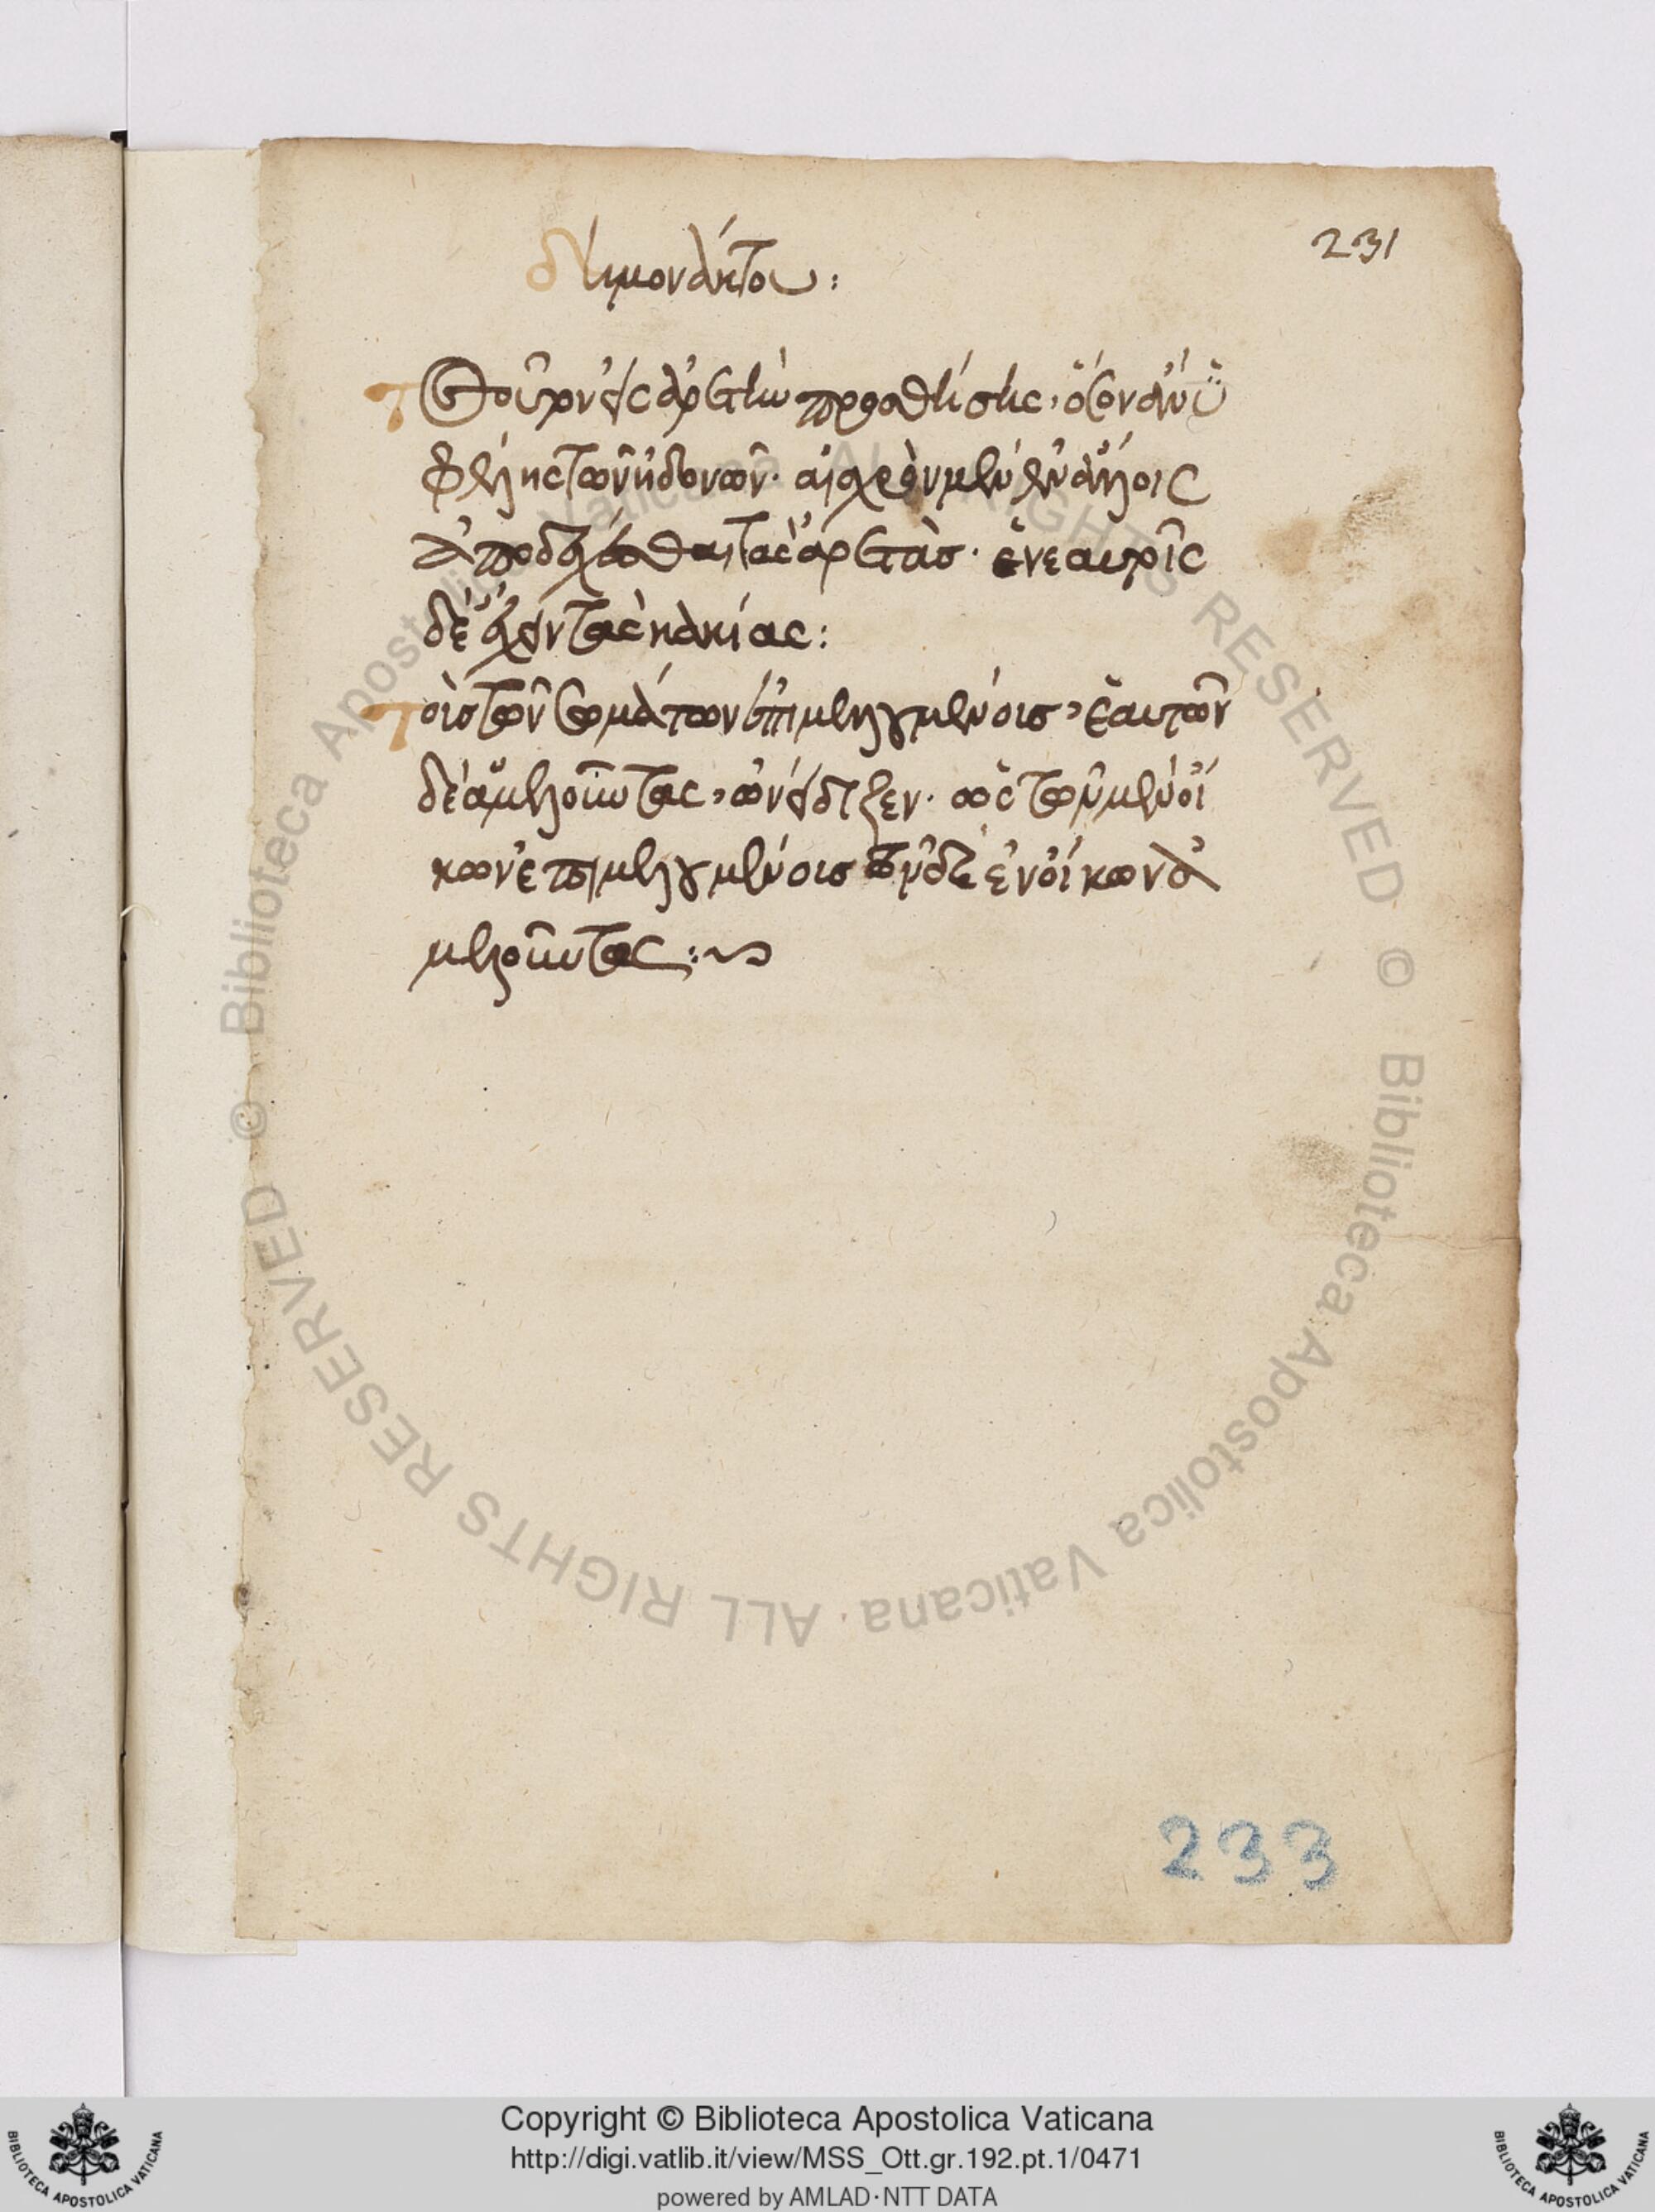 231
δίμονάκτου:
Τοσοῦτον εἰς ἀρετὴν προσθήσεις, ὅσον ἂν ὑ
φέλῃς τῶν ἡδονῶν. αἰσχρὸν μὲν ἐν ἄλλοις
ἀποδέχεσθαι τὰς ἀρετὰς. ἐν ἑαυτοῖς
δὲ ἔχοντας κακίας:
τοῖς τῶν σωμάτων ἐπιμελουμένοις, ἑαυτῶν
δὲ ἀμελοῦντας, ὠνείδιζεν. ὡς τῶν μὲν οἴ
κων ἐπιμελουμένοις τῶν δὲ ἐνοίκων ἀ
μελοῦντας:~
233
Biblioteca Apostolica Vaticana. ALL RIGHTS RESERVED ©
Biblioteca Apostolica Vaticana. ALL RIGHTS RESERVED ©
BIBLIOTECA APOSTOLICA VATICANA
Copyright © Biblioteca Apostolica Vaticana
http://digi.vatlib.it/view/MSS_Ott.gr.192.pt.1/0471
powered by AMLAD·NTT DATA
BIBLIOTECA APOSTOLICA VATICANA